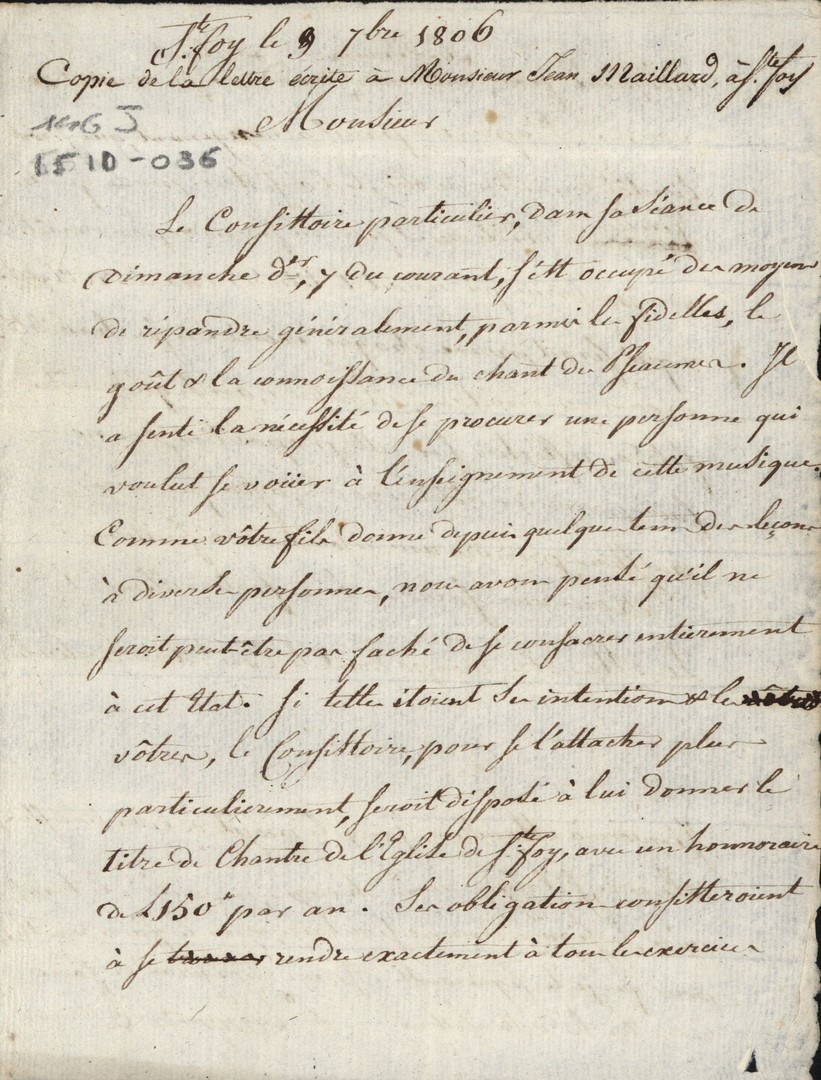 Ste. foy le 9 7bre 1806
Copie de la lettre écrite à Monsieur Jean Maillard, à Ste. foy
Monsieur
146 J
1510-036
Le Consistoire particulier, dans sa séance de
Dimanche der, 7 du courant, s'est occupé des moyens
de répandre généralement, parmis les fidelles, le
goût & la connoissance du chant des Pseaumes. Il
a senti la nécessité de se procurer une personne qui
voulut se voüer à l'enseignement de cette musique.
Comme vôtre fils donne depuis quelque tems des leçons
à diverses personnes, nous avons pensé qu'il ne
seroit peut-être pas faché de se consacrer entierement
à cet Etat. Si telles étoient ses intentions & les vôtres
vôtres, le Consistoire, pour se l'attacher plus
particulierement, seroit disposé à lui donner le
titre de Chantre de l'Eglise de Ste. foy, avec un honnoraire
de £150" par an. Ses obligations consisteroient
à se rendre exactement à tous les exercices